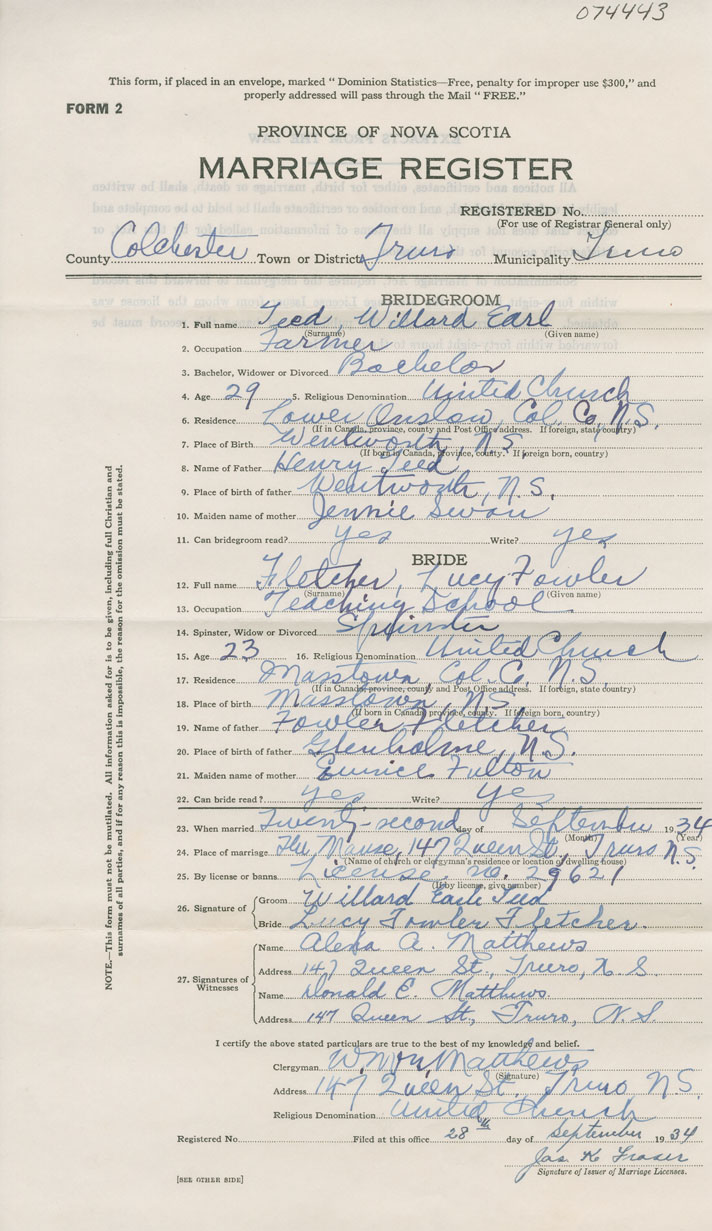 074443
This form, if placed in an envelope, marked “ Dominion Statistics—Free, penalty for improper use $300,” and
properly addressed will pass through the Mail “ FREE.”
FORM 2
PROVINCE OF NOVA SCOTIA
MARRIAGE REGISTER
REGISTERED No.
(For use of Registrar General only)
County Colchester Town or District Truro Municipality Truro
BRIDEGROOM
1. Full name Teed, Willard Earl
(Surname) (Given name)
2. Occupation Farmer
3. Bachelor, Widower or Divorced Bachelor
4. Age 29 5. Religious Denomination United Church
6. Residence Lower Onslow, Col. Co, N.S.
(If in Canada, province, county and Post Office address. If foreign, state country)
7. Place of Birth Wentworth, N.S.
(If born in Canada, province, county. If foreign born, country)
8. Name of Father Henry Teed
9. Place of birth of father Wentworth, N.S.
10. Maiden name of mother Jennie Swan
11. Can bridegroom read? yes Write? yes
BRIDE
12. Full name Fletcher, Lucy Fowler
(Surname) (Given name)
13. Occupation Teaching School
14. Spinster, Widow or Divorced Spinster
15. Age 23 16. Religious Denomination United Church
17. Residence Masstown, Col. Co, N.S.
(If in Canada, province, county and Post Office address. If foreign, state country)
18. Place of birth Masstown, N.S.
(If born in Canada, province, county. If foreign born, country)
19. Name of father Fowler Fletcher
20. Place of birth of father Glenholme, N.S.
21. Maiden name of mother Eunice Fulton
22. Can bride read? yes Write? yes
23. When married Twenty-second day of September 1934
(Month) (Year)
24. Place of marriage The Manse, 147 Queen St., Truro N.S.
(Name of church or clergyman's residence or location of dwelling house)
25. By license or banns License no. 29621
(If by license, give number)
26. Signature of Groom Willard Earle Teed
Bride Lucy Fowler Fletcher.
27. Signatures of Witnesses Name Alena A. Matthews
Address 147 Queen St., Truro, N.S.
Name Donald E. Matthews.
Address 147 Queen St., Truro, N.S.
I certify the above stated particulars are true to the best of my knowledge and belief.
Clergyman Matthews
(Signature)
Address 147 Queen St. Truro N.S.
Religious Denomination United Church
Registered No. Filed at this office 28th day of September 1934
Jas. K. Fraser
Signature of Issuer of Marriage Licenses.
[SEE OTHER SIDE]
NOTE.—This form must not be mutilated. All information asked for is to be given, including full Christian and
surnames of all parties, and if for any reason this is impossible, the reason for the omission must be stated.